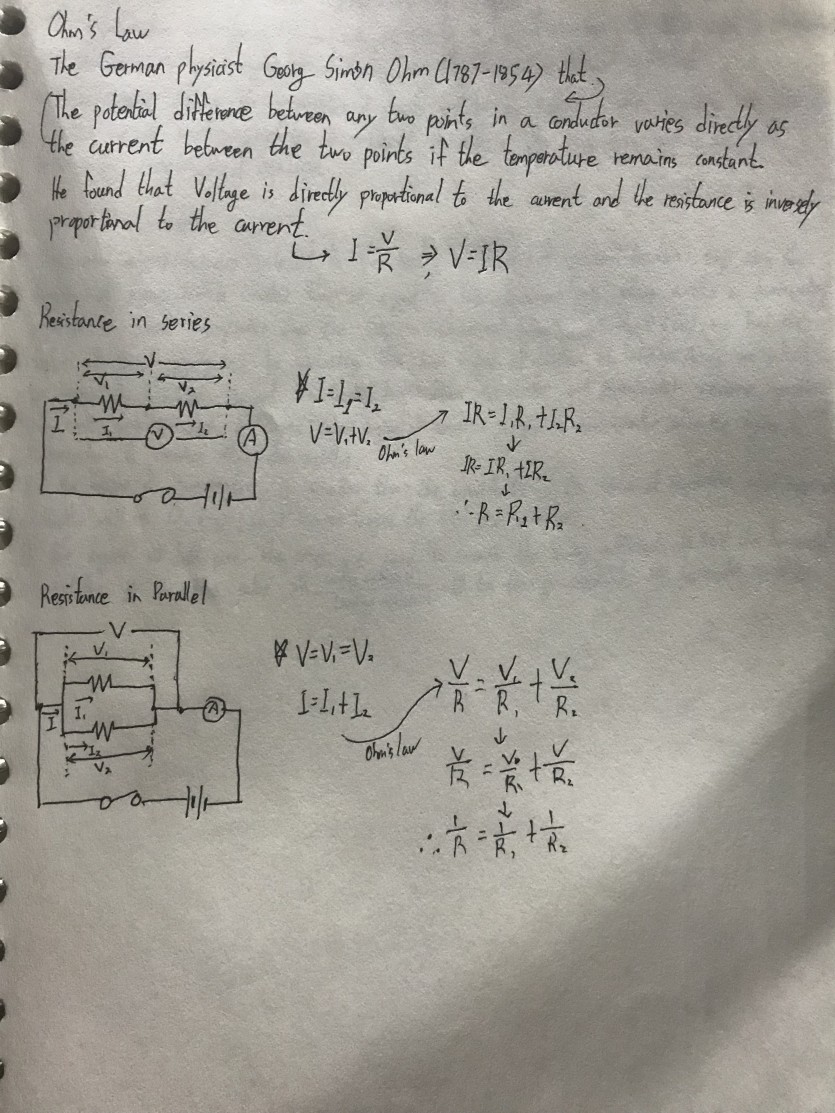 Ohm's Law
The German physicist Georg Simon Ohm (1787-1854) that
(The potential difference between any two points in a conductor varies directly as
the current between the two points if the temperature remains constant.
He found that Voltage is directly proportional to the current and the resistance is inversely
proportional to the current.
I = V/R ⇒ V=IR
Resistance in series
V
V₁ V₂
I I₁ V I₂ A
I=I₁=I₂
V=V₁+V₂
Ohm's law
IR=I₁R₁+I₂R₂
↓
IR=IR₁+IR₂
↓
∴R=R₁+R₂
Resistance in Parallel
V
V₁
I I₁ A
I₂
V₂
V=V₁=V₂
I=I₁+I₂
Ohm's law
V/R = V₁/R₁ + V₂/R₂
↓
V/R = V/R₁ + V/R₂
↓
∴ 1/R = 1/R₁ + 1/R₂